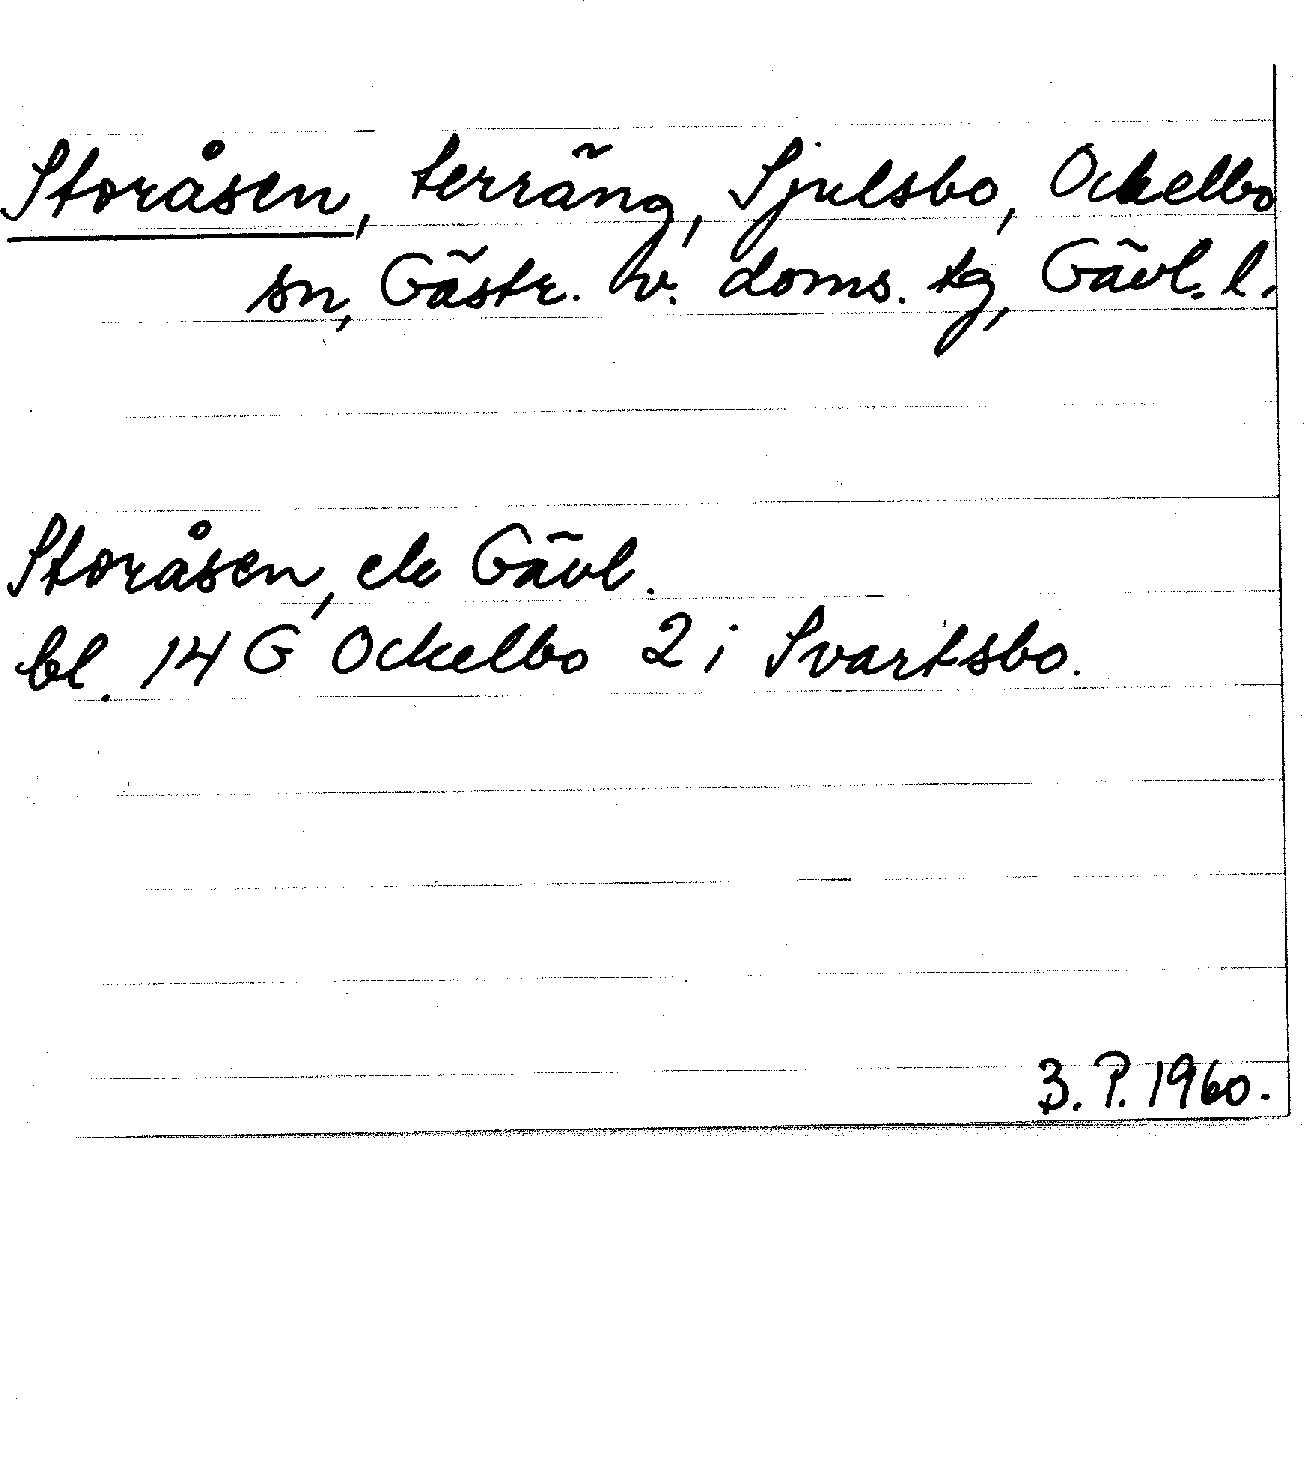 Storåsen, terräng, Sjulsbo, Ockelbo
sn, Gästr. v. doms. tg, Gävl. l.
Storåsen, ek Gävl.
bl. 14 G Ockelbo 2 i Svartsbo.
B. P. 1960.